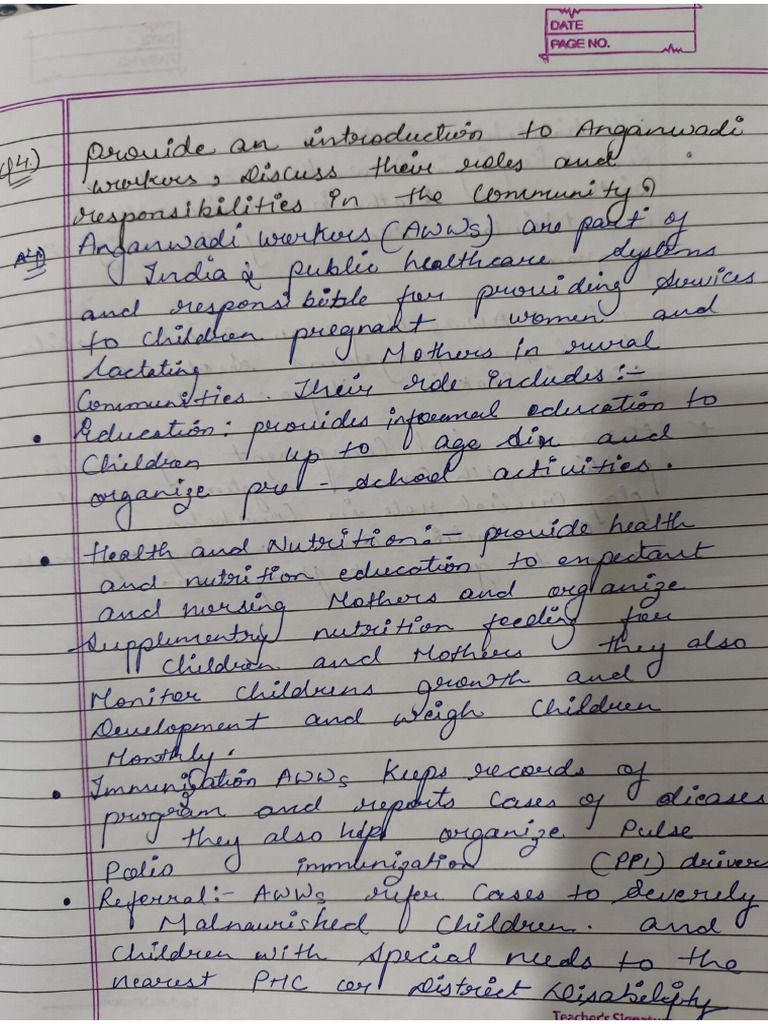 DATE
PAGE NO.
Q4.) provide an introduction to Anganwadi
workers, Discuss their roles and
responsibilities in the Community?
Anganwadi workers (AWWs) are part of
India's public healthcare systems
and responsibible for providing services
to children pregnant women and
lactating Mothers in rural
Communities. Their role includes:-
• Education: provides informal education to
Children up to age Six and
organize pre-school activities.
• Health and Nutrition:- provide health
and nutrition education to expectant
and nursing Mothers and organize
Supplementry nutrition feeding for
Children and Mothers they also
Moniter childrens growth and
Development and weigh Children
Monthly.
• Immunization AWWs Keeps records of
program and reports Cases of diceases
they also help organize Pulse
Polio immunization (PPI) driver
• Referral:- AWWs refer Cases to Severely
Malnaurished Children. and
Children with special needs to the
nearest PHC or District Disability
Teacher's